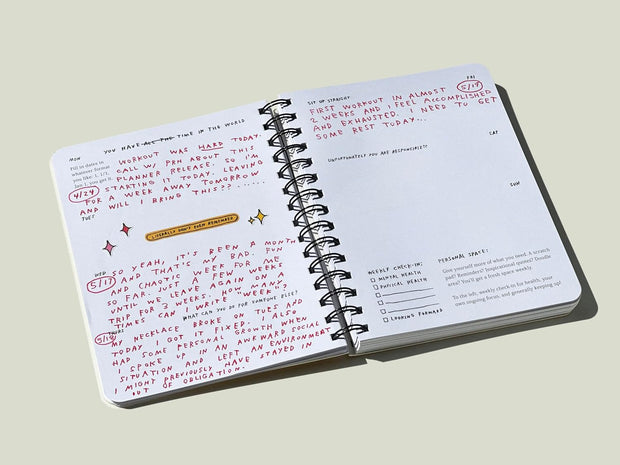 YOU HAVE ALL THE TIME IN THE WORLD
MON
Fill in dates in
whatever format
you like. 1, 1/1,
Jan 1, you get it.
4/24
WORKOUT WAS HARD TODAY.
CALL W/ PRH ABOUT THIS
PLANNER RELEASE. SO I'M
STARTING IT TODAY. LEAVING
FOR A WEEK AWAY TOMORROW
AND WILL I BRING THIS??......
TUES
LITERALLY DON'T EVEN REMEMBER
WED
5/17
SO YEAH, IT'S BEEN A MONTH
AND THAT'S MY BAD. FUN
AND CHAOTIC WEEK FOR ME
SO FAR. JUST A FEW WEEKS
UNTIL WE LEAVE AGAIN ON A
TRIP FOR 3 WEEKS. HOW MANY
TIMES CAN I WRITE "WEEK"?
WHAT CAN YOU DO FOR SOMEONE ELSE?
THURS
5/18
MY NECKLACE BROKE ON TUES AND
TODAY I GOT IT FIXED. I ALSO
HAD SOME PERSONAL GROWTH WHEN
I SPOKE UP IN AN AWKWARD SOCIAL
SITUATION AND LEFT AN ENVIRONMENT
I MIGHT PREVIOUSLY HAVE STAYED IN
OUT OF OBLIGATION.
SIT UP STRAIGHT.
FRI
5/19
FIRST WORKOUT IN ALMOST
2 WEEKS AND I FEEL ACCOMPLISHED
AND EXHAUSTED. I NEED TO GET
SOME REST TODAY...
SAT
UNFORTUNATELY YOU ARE RESPONSIBLE
SUN
WEEKLY CHECK-IN:
MENTAL HEALTH
PHYSICAL HEALTH
LOOKING FORWARD
PERSONAL SPACE:
Got yourself more of what you need. A scratch
pad? Reminders? Inspirational quotes? Doodle
area? You'll get a fresh space weekly.
To the left, weekly check-in for health, your
own ongoing focus, and generally keeping up!